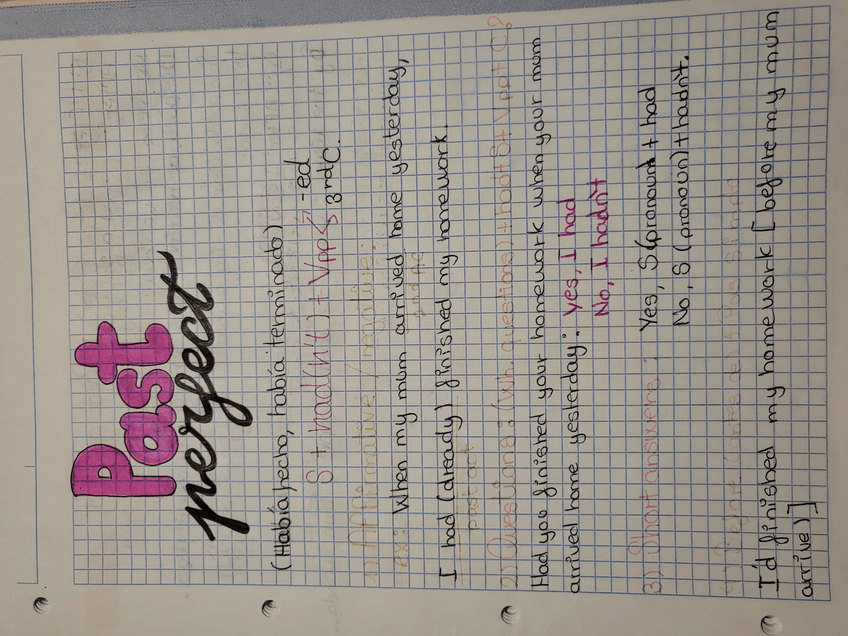 Past
perfect
(Había hecho, había terminado)
S + had(n't) + Vpp -ed
3rd C.
1) Affirmative / negative:
ex: When my mum arrived home yesterday,
I had (already) finished my homework.
past act
2) Questions: (Wh. questions) + had + S + Vpp + C?
Had you finished your homework when your mum
arrived home yesterday?: Yes, I had
No, I hadn't
3) Short answers: Yes, S (pronoun) + had
No, S (pronoun) + hadn't.
4) Before (antes de) + Pas Simple
I'd finished my homework [before my mum
arrive)]